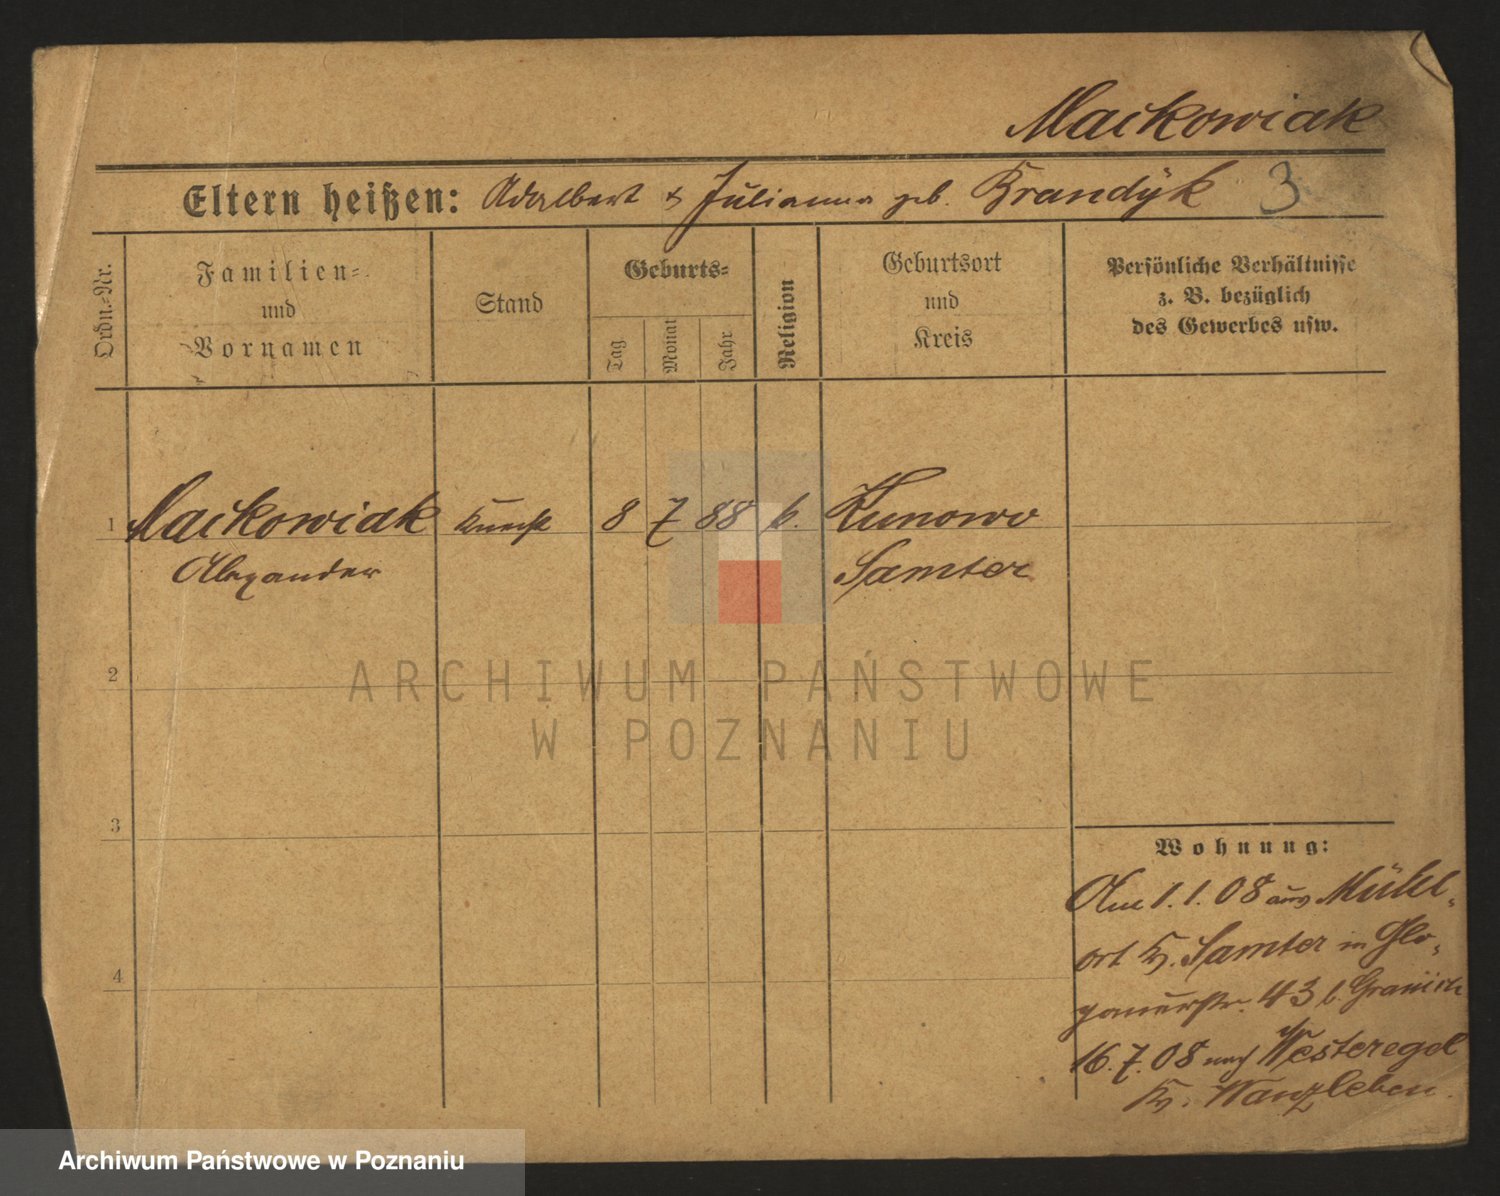 Mackowiak
Eltern heißen: Adalbert & Julianna geb. Brandÿk 3
Ordn.-Nr.
Familien-
und
Vornamen
Stand
Geburts-
Tag
Monat
Jahr
Religion
Geburtsort
und
Kreis
Persönliche Verhältnisse
z. B. bezüglich
des Gewerbes usw.
1 Mackowiak Knecht 8 7 88 k. Kunowo
Alexander Samter
2
3
4
Wohnung:
Am 1.1.08 aus Mühl-
ort Kr. Samter in Glo-
gauerstr. 43 b.
16.7.08 nach Westeregel
Kr. Wanzleben.
ARCHIWUM PAŃSTWOWE
W POZNANIU
Archiwum Państwowe w Poznaniu